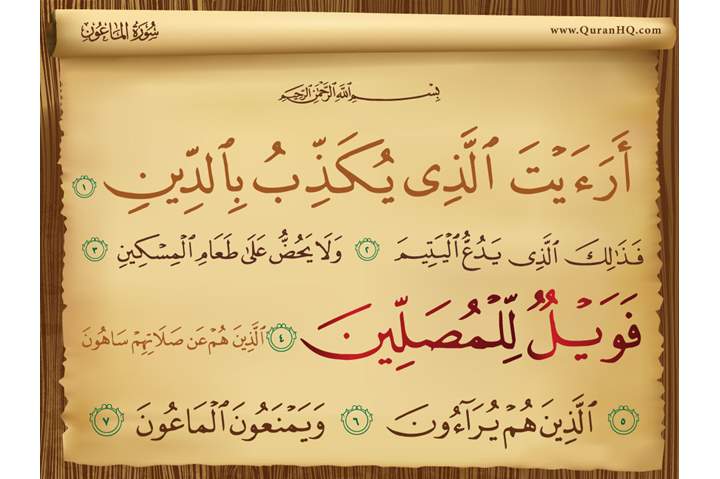 سُورَةُ المَاعُون
www.QuranHQ.com
بِسْمِ اللَّهِ الرَّحْمَٰنِ الرَّحِيمِ
أَرَءَيْتَ ٱلَّذِى يُكَذِّبُ بِٱلدِّينِ ١
فَذَٰلِكَ ٱلَّذِى يَدُعُّ ٱلْيَتِيمَ ٢ وَلَا يَحُضُّ عَلَىٰ طَعَامِ ٱلْمِسْكِينِ ٣
فَوَيْلٌ لِّلْمُصَلِّينَ ٤ ٱلَّذِينَ هُمْ عَن صَلَاتِهِمْ سَاهُونَ
٥ ٱلَّذِينَ هُمْ يُرَآءُونَ ٦ وَيَمْنَعُونَ ٱلْمَاعُونَ ٧